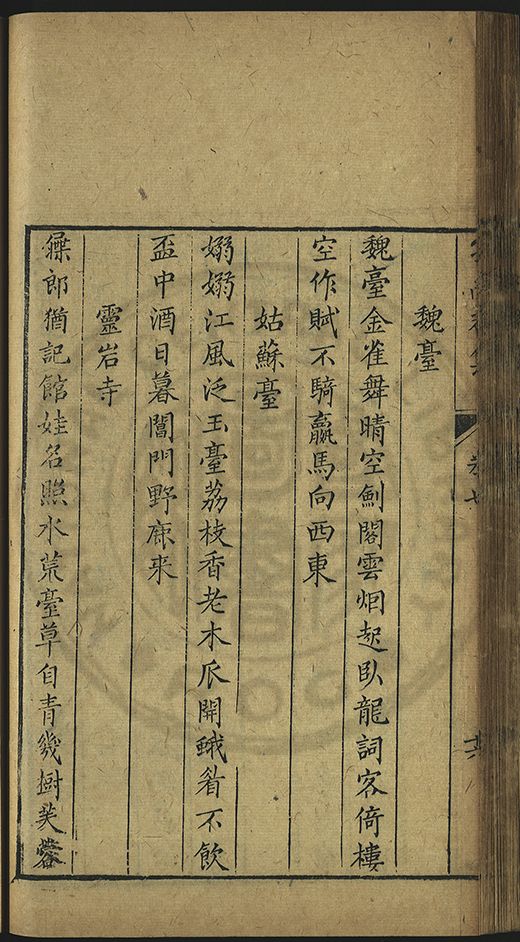 魏臺
魏臺金雀舞晴空劍閣雲烟起臥龍詞客倚樓
空作賦不騎羸馬向西東
姑蘇臺
嫋嫋江風泛玉臺荔枝香老木瓜開蛾眉不飲
盃中酒日暮閶門野鹿来
靈岩寺
屧郎猶記館娃名照水荒臺草自青幾樹芙蓉